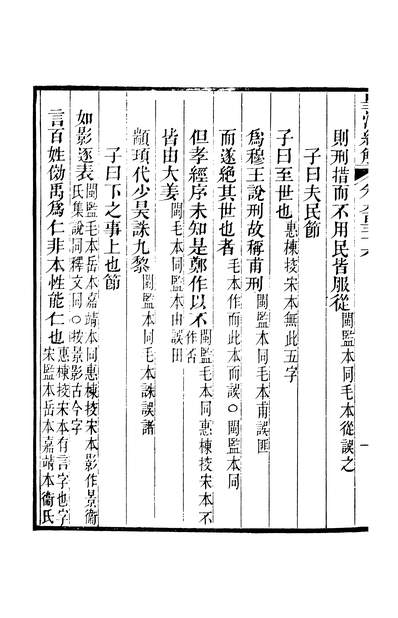 則刑措而不用民皆服從閩監本同毛本從誤之
子曰夫民節
子曰至世也惠棟挍宋本無此五字
爲穆王說刑故稱甫刑閩監本同毛本甫誤匪
而遂絕其世也者毛本作而此本而誤○閩監本同
但孝經序未知是鄭作以不閩監毛本同惠棟挍宋本不作否
皆由大姜閩毛本同監本由誤田
顓頊代少昊誅九黎閩監本同毛本誅誤諸
子曰下之事上也節
如影逐表閩監毛本岳本嘉靖本同惠棟挍宋本影作景衞氏集說同釋文同○按景影古今字
言百姓傚禹爲仁非本性能仁也惠棟挍宋本有言字也字宋監本岳本嘉靖本衞氏